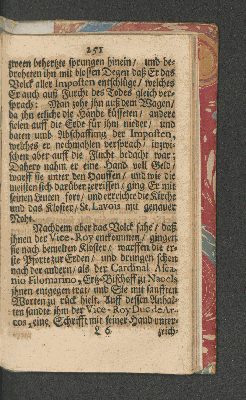 251
zween behertzte sprungen hinein/ und be-
droheten ihn mit blossen Degen daß Er das
Volck aller Imposten entschlüge/ welches
Er auch auß Furcht des Todes gleich ver-
sprach: Man zohe ihn auß dem Wagen/
da ihn etliche die Hände küsseten/ andere
fielen auff die Erde für ihm nieder/ und
baten umb Abschaffung der Imposten,
welches er nochmahlen versprach/ inzwi-
schen aber auff die Flucht bedacht war:
Dahero nahm er eine Hand voll Geld/
warff sie unter den Hauffen/ und wie die
meisten sich darüber zerrissen/ ging Er mit
seinen Leuten fort/ und erreichte die Kirche
und das Kloster/ St. Lavois mit genauer
Naht.
Nachdem aber das Volck sahe/ daß
ihnen der Vice-Roy entkommen/ gingen
sie nach bemelten Kloster/ warffen die er-
ste Pforte zur Erden/ und drungen schon
nach der andern/ als der Cardinal Asca-
nio Filomarino, Ertz-Bischoff zu Napels
ihnen entgegen trat/ und Sie mit sanfften
Worten zu rück hielt. Auff dessen Anhal-
ten sandte ihm der Vice-Roy Duc de Ar-
cos, eine Schrifft mit seiner Hand unter-
L 6 zeich-